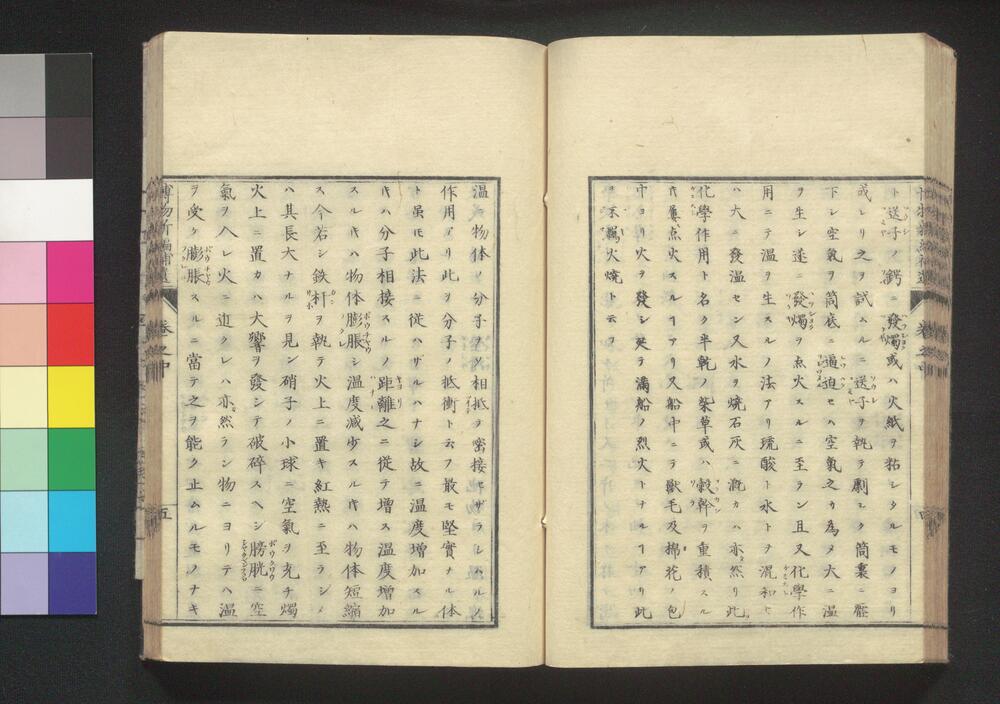 ト送子ノ鍔ニ發燭或ハ火紙ヲ粘シタルモノヨリ
成レリ之ヲ試ムルニ送子ヲ執テ劇シク筒裏ニ壓
下シ空氣ヲ筒底ニ逼迫セハ空氣之カ為メ大ニ温
ヲ生シ遂ニ發燭ヲ点火スルニ至ラン且又化學作
用ニテ温ヲ生スルノ法アリ琉酸ト水トヲ混和セ
ハ大ニ發温セン又水ヲ焼石灰ニ漑カハ亦然リ此
化學作用ト名ク半乾ノ蒭草或ハ穀幹ヲ重積スル
片屢点火スルヿアリ又船中ニテ獣毛及棉花ノ包
中ヨリ火ヲ發シ終ラ満船ノ烈火トナルヿアリ此
ヲ不羈火焼ト云フ
温ニ物体ノ分子ヲシ相抵ヲ密接セザラシハルノ
作用アリ此ヲ分子ノ抵衝ト云フ最モ堅實ナル体
ト虽モ此法ニ從ハザルハナシ故ニ温度增加スル
片ハ分子相接スルノ距離之ニ從テ增ス温度增加
スル片ハ物体膨脹シ温度減少スル片ハ物体短縮
ス今若シ鉄杆ヲ執テ火上ニ置キ紅熱ニ至ラシメ
ハ其長大ナルヲ見ン硝子ノ小球ニ空氣ヲ充チ燭
火上ニ置カハ大響ヲ發シテ破碎スヘシ膀胱ニ空
氣ヲ入レ火ニ近クレハ亦然ラン物ニヨリテハ温
ヲ受ケ膨脹スルニ當テ之ヲ能ク止ムルモノナキ
博物新編補遺 卷之中 五